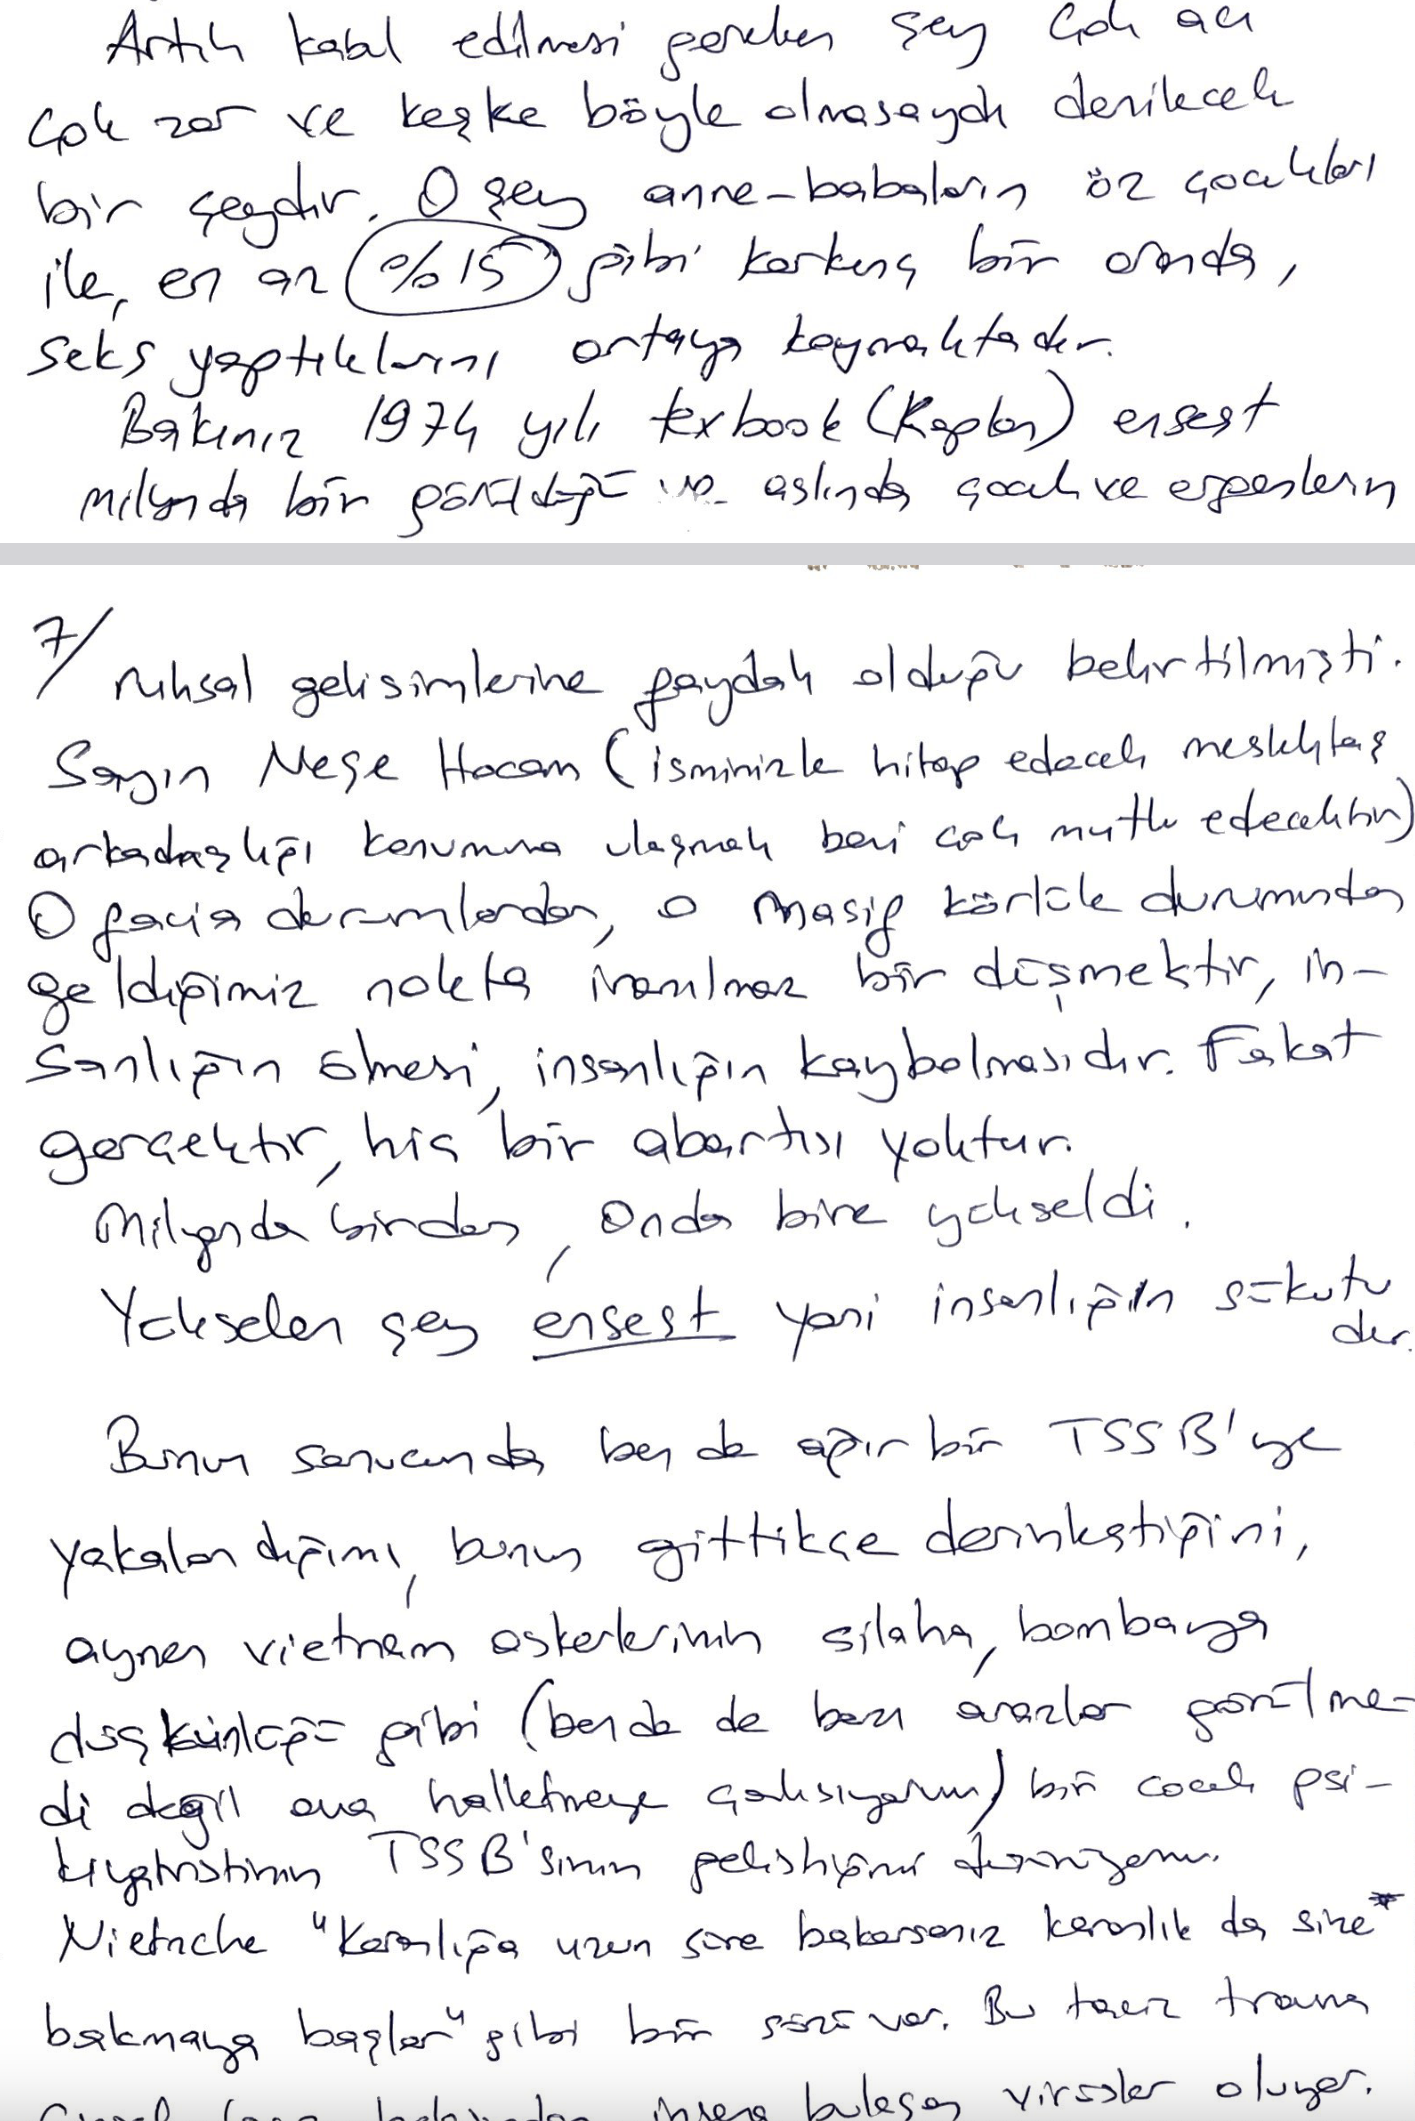 Artık kabul edilmesi gereken şey çok acı
çok zor ve keşke böyle olmasaydı denilecek
bir şeydir. O şey anne-babaların öz çocukları
ile, en az %15 gibi korkunç bir oranda,
seks yaptıklarını ortaya koymaktadır.
Bakınız 1974 yılı texbook (Kaplan) ensest
milyonda bir görüldüğü ve aslında çocuk ve ergenlerin
7/ ruhsal gelisimlerine faydalı olduğu belirtilmişti.
Sayın Neşe Hocam (isminizle hitap edecek meslektaş
arkadaşlığı konumuna ulaşmak beni çok mutlu edecektir)
O facia durumlardan, o masif körlük durumundan
geldiğimiz nokta inanılmaz bir düşmektir, in-
sanlığın ölmesi, insanlığın kaybolmasıdır. Fakat
gerçektir, hiç bir abartısı yoktur.
Milyonda birden, onda bire yükseldi.
Yükselen şey ensest yani insanlığın sükutu
dur.
Bunun sonucunda ben de ağır bir TSSB'ye
yakalandığımı, bunun gittikçe derinleştiğini,
aynen vietnam askerlerinin silaha, bombaya
düşkünlüğü gibi (bende de bazı arazlar görülme-
di değil ama halletmeye çalışıyorum) bir çocuk psi-
kiyatristinin TSSB'sinin geliştiğini
Nietzche "Karanlığa uzun süre bakarsanız karanlık da size*
bakmaya başlar" gibi bir sözü var. Bu taciz travma
insana bulaşan virüsler oluyor.